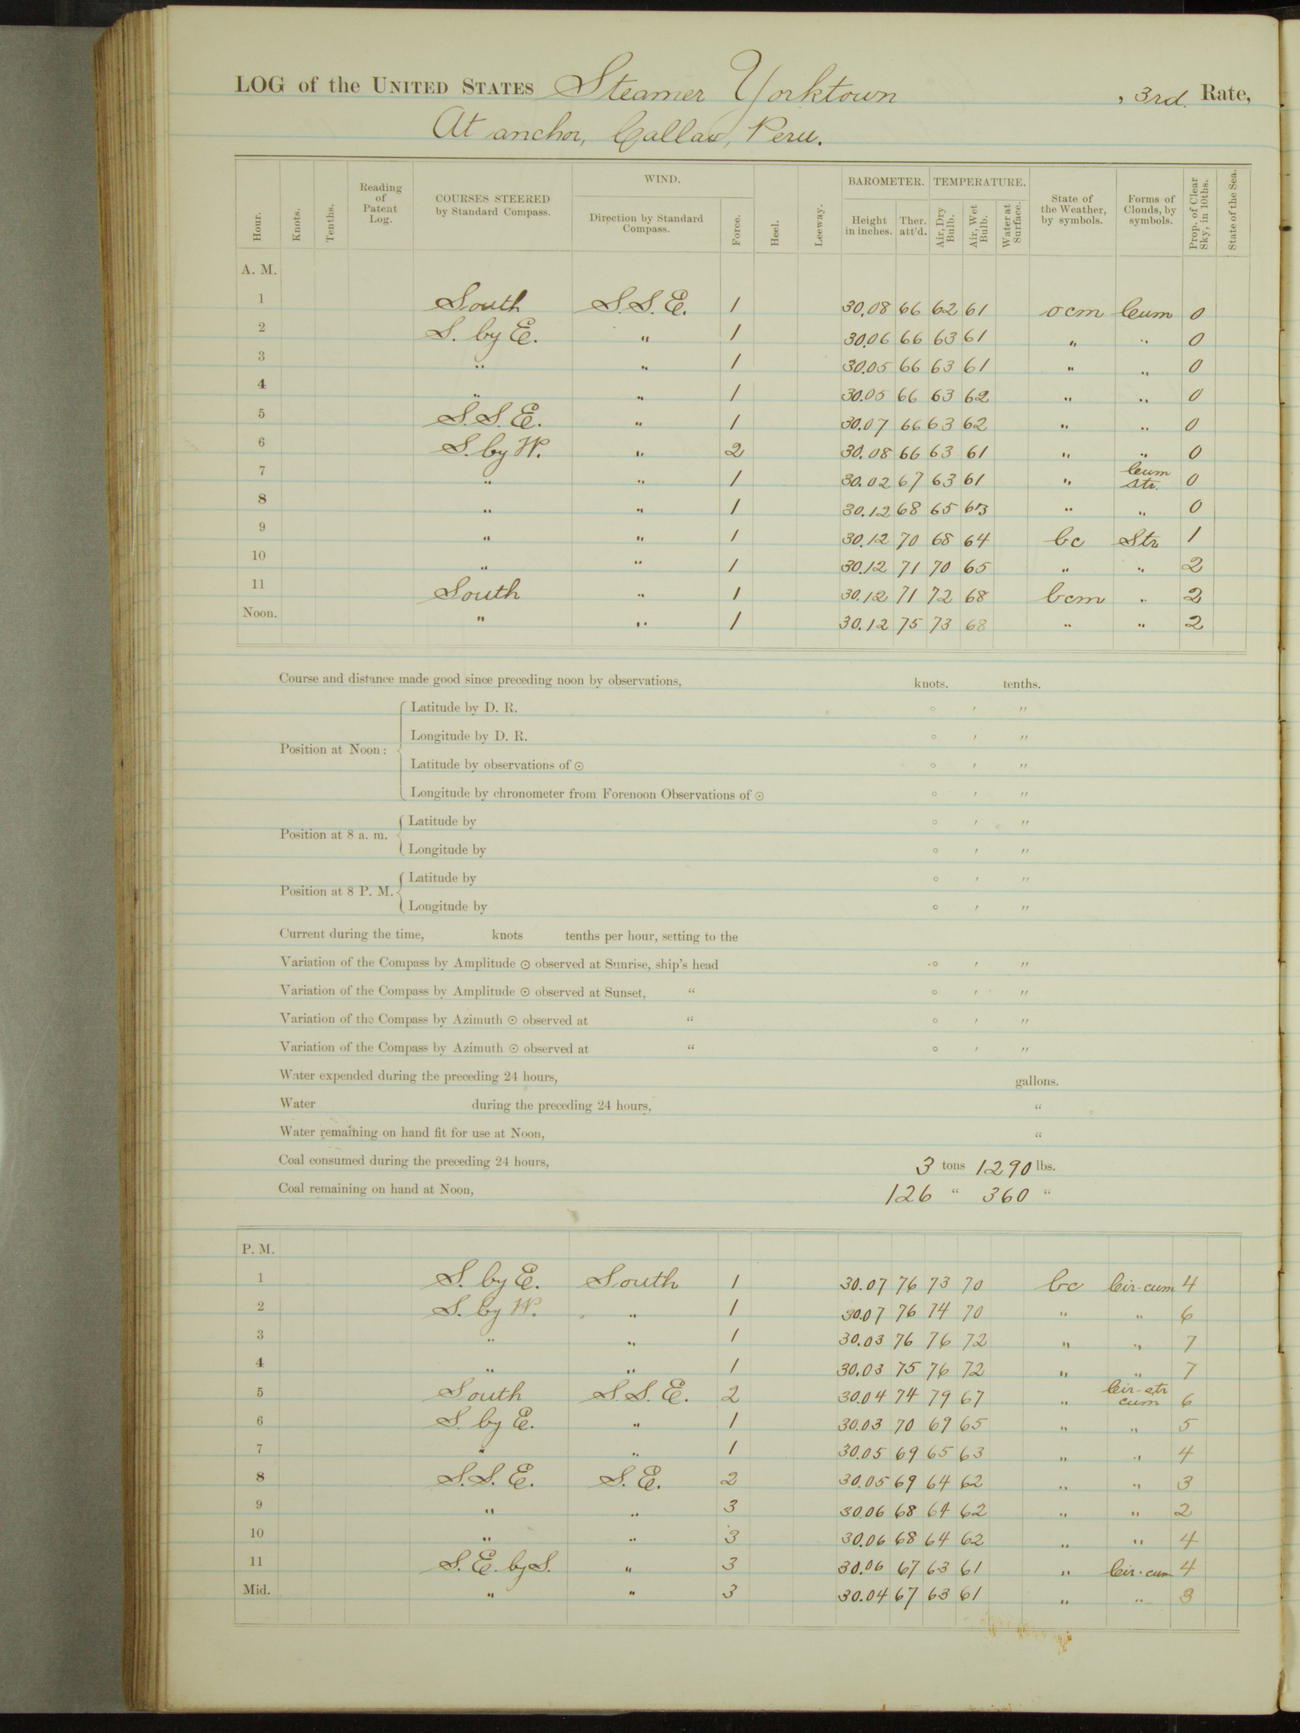 LOG of the UNITED STATES Steamer Yorktown, 3rd. Rate,
At anchor, Callao, Peru.
Hour. Knots. Tenths. Reading of Patent Log. COURSES STEERED by Standard Compass. WIND. Direction by Standard Compass. Force. Heel. Leeway. BAROMETER. Height in inches. Ther. att'd. TEMPERATURE. Air, Dry Bulb. Air, Wet Bulb. Water at Surface. State of the Weather, by symbols. Forms of Clouds, by symbols. Prop. of Clear Sky, in 10ths. State of the Sea.
A. M.
1 South S.S.E. 1 30.08 66 62 61 ocm Cum 0
2 S. by E. " 1 30.06 66 63 61 " " 0
3 " " 1 30.05 66 63 61 " " 0
4 " " 1 30.05 66 63 62 " " 0
5 S.S.E. " 1 30.07 66 63 62 " " 0
6 S. by W. " 2 30.08 66 63 61 " " 0
7 " " 1 30.02 67 63 61 " Cum str. 0
8 " " 1 30.12 68 65 63 " " 0
9 " " 1 30.12 70 68 64 bc Str 1
10 " " 1 30.12 71 70 65 " " 2
11 South " 1 30.12 71 72 68 bcm " 2
Noon. " " 1 30.12 75 73 68 " " 2
Course and distance made good since preceding noon by observations, knots. tenths.
Position at Noon: Latitude by D. R. ° ′ ″
Longitude by D. R. ° ′ ″
Latitude by observations of ☉ ° ′ ″
Longitude by chronometer from Forenoon Observations of ☉ ° ′ ″
Position at 8 a. m. Latitude by ° ′ ″
Longitude by ° ′ ″
Position at 8 P. M. Latitude by ° ′ ″
Longitude by ° ′ ″
Current during the time, knots tenths per hour, setting to the
Variation of the Compass by Amplitude ☉ observed at Sunrise, ship's head ° ′ ″
Variation of the Compass by Amplitude ☉ observed at Sunset, " ° ′ ″
Variation of the Compass by Azimuth ☉ observed at " ° ′ ″
Variation of the Compass by Azimuth ☉ observed at " ° ′ ″
Water expended during the preceding 24 hours, gallons.
Water during the preceding 24 hours, "
Water remaining on hand fit for use at Noon, "
Coal consumed during the preceding 24 hours, 3 tons 1290 lbs.
Coal remaining on hand at Noon, 126 " 360 "
P. M.
1 S. by E. South 1 30.07 76 73 70 bc Cir-cum 4
2 S. by W. " 1 30.07 76 74 70 " " 6
3 " " 1 30.03 76 76 72 " " 7
4 " " 1 30.03 75 76 72 " " 7
5 South S.S.E. 2 30.04 74 79 67 " Cir-str cum 6
6 S. by E. " 1 30.03 70 69 65 " " 5
7 " " 1 30.05 69 65 63 " " 4
8 S.S.E. S.E. 2 30.05 69 64 62 " " 3
9 " " 3 30.06 68 64 62 " " 2
10 " " 3 30.06 68 64 62 " " 4
11 S.E. by S. " 3 30.06 67 63 61 " Cir-cum 4
Mid. " " 3 30.04 67 63 61 " " 3